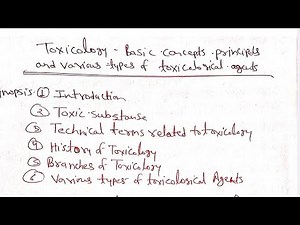 Toxicology - Basic concepts, principles
and various types of toxicological agents
Synopsis: ① Introduction
② Toxic Substanse
③ Technical terms related to toxicology
④ History of Toxicology
⑤ Branches of Toxicology
⑥ Various types of toxicological Agents